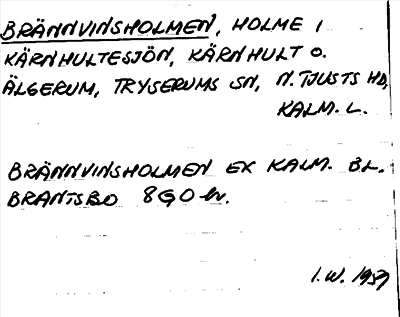 BRÄNNVINSHOLMEN, HOLME I
KÄRNHULTESJÖN, KÄRNHULT O.
ÄLGERUM, TRYSERUMS SN, N. TJUSTS HD,
KALM. L.
BRÄNNVINSHOLMEN EK KALM. BL.
BRANTSBO 8G0
I.W. 1959